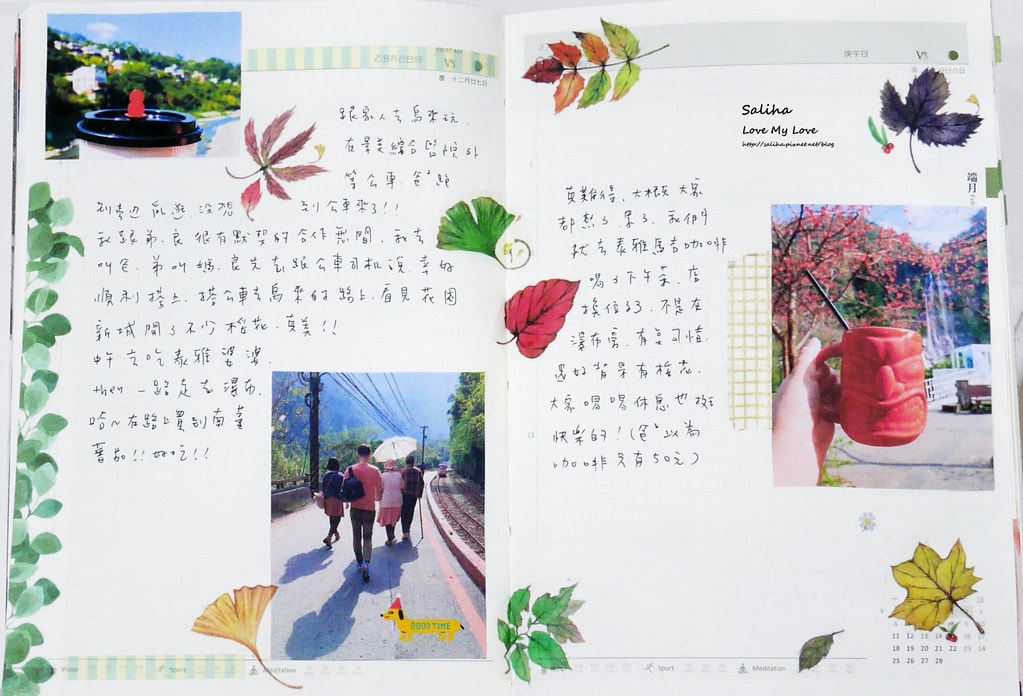 乙丑月己巳日
農:十二月廿七日
跟家人去烏來玩
在景美綜合醫院外
等公車.爸
到旁邊亂逛.沒想 到公車來了!!
我跟弟.良很有默契的合作無間.我去
叫爸.弟叫媽.良先去跟公車司机說.幸好
順利搭上.搭公車去烏來的路上.看見花園
新城開了不少櫻花.真美!!
中午去吃泰雅婆婆.
then 一路走去瀑布.
哈~在路上買到南薑
蕃茄!!好吃!!
GOOD TIME
Water
Sport
Meditation
庚午日
廿八日
Saliha
Love My Love
http://saliha.pixnet.net/blog
端月
真難得.大概大家
都想了.累了.我們
就去泰雅馬告咖啡
喝了下午茶.店
換位了.不是在
瀑布旁.有點可惜.
還好背景有櫻花.
大家喝喝休息也挺
快樂的!(爸以為
咖啡只有50元)
Sport
Meditation
11 12 13 14 15 16 17
18 19 20 21 22 23 24
25 26 27 28